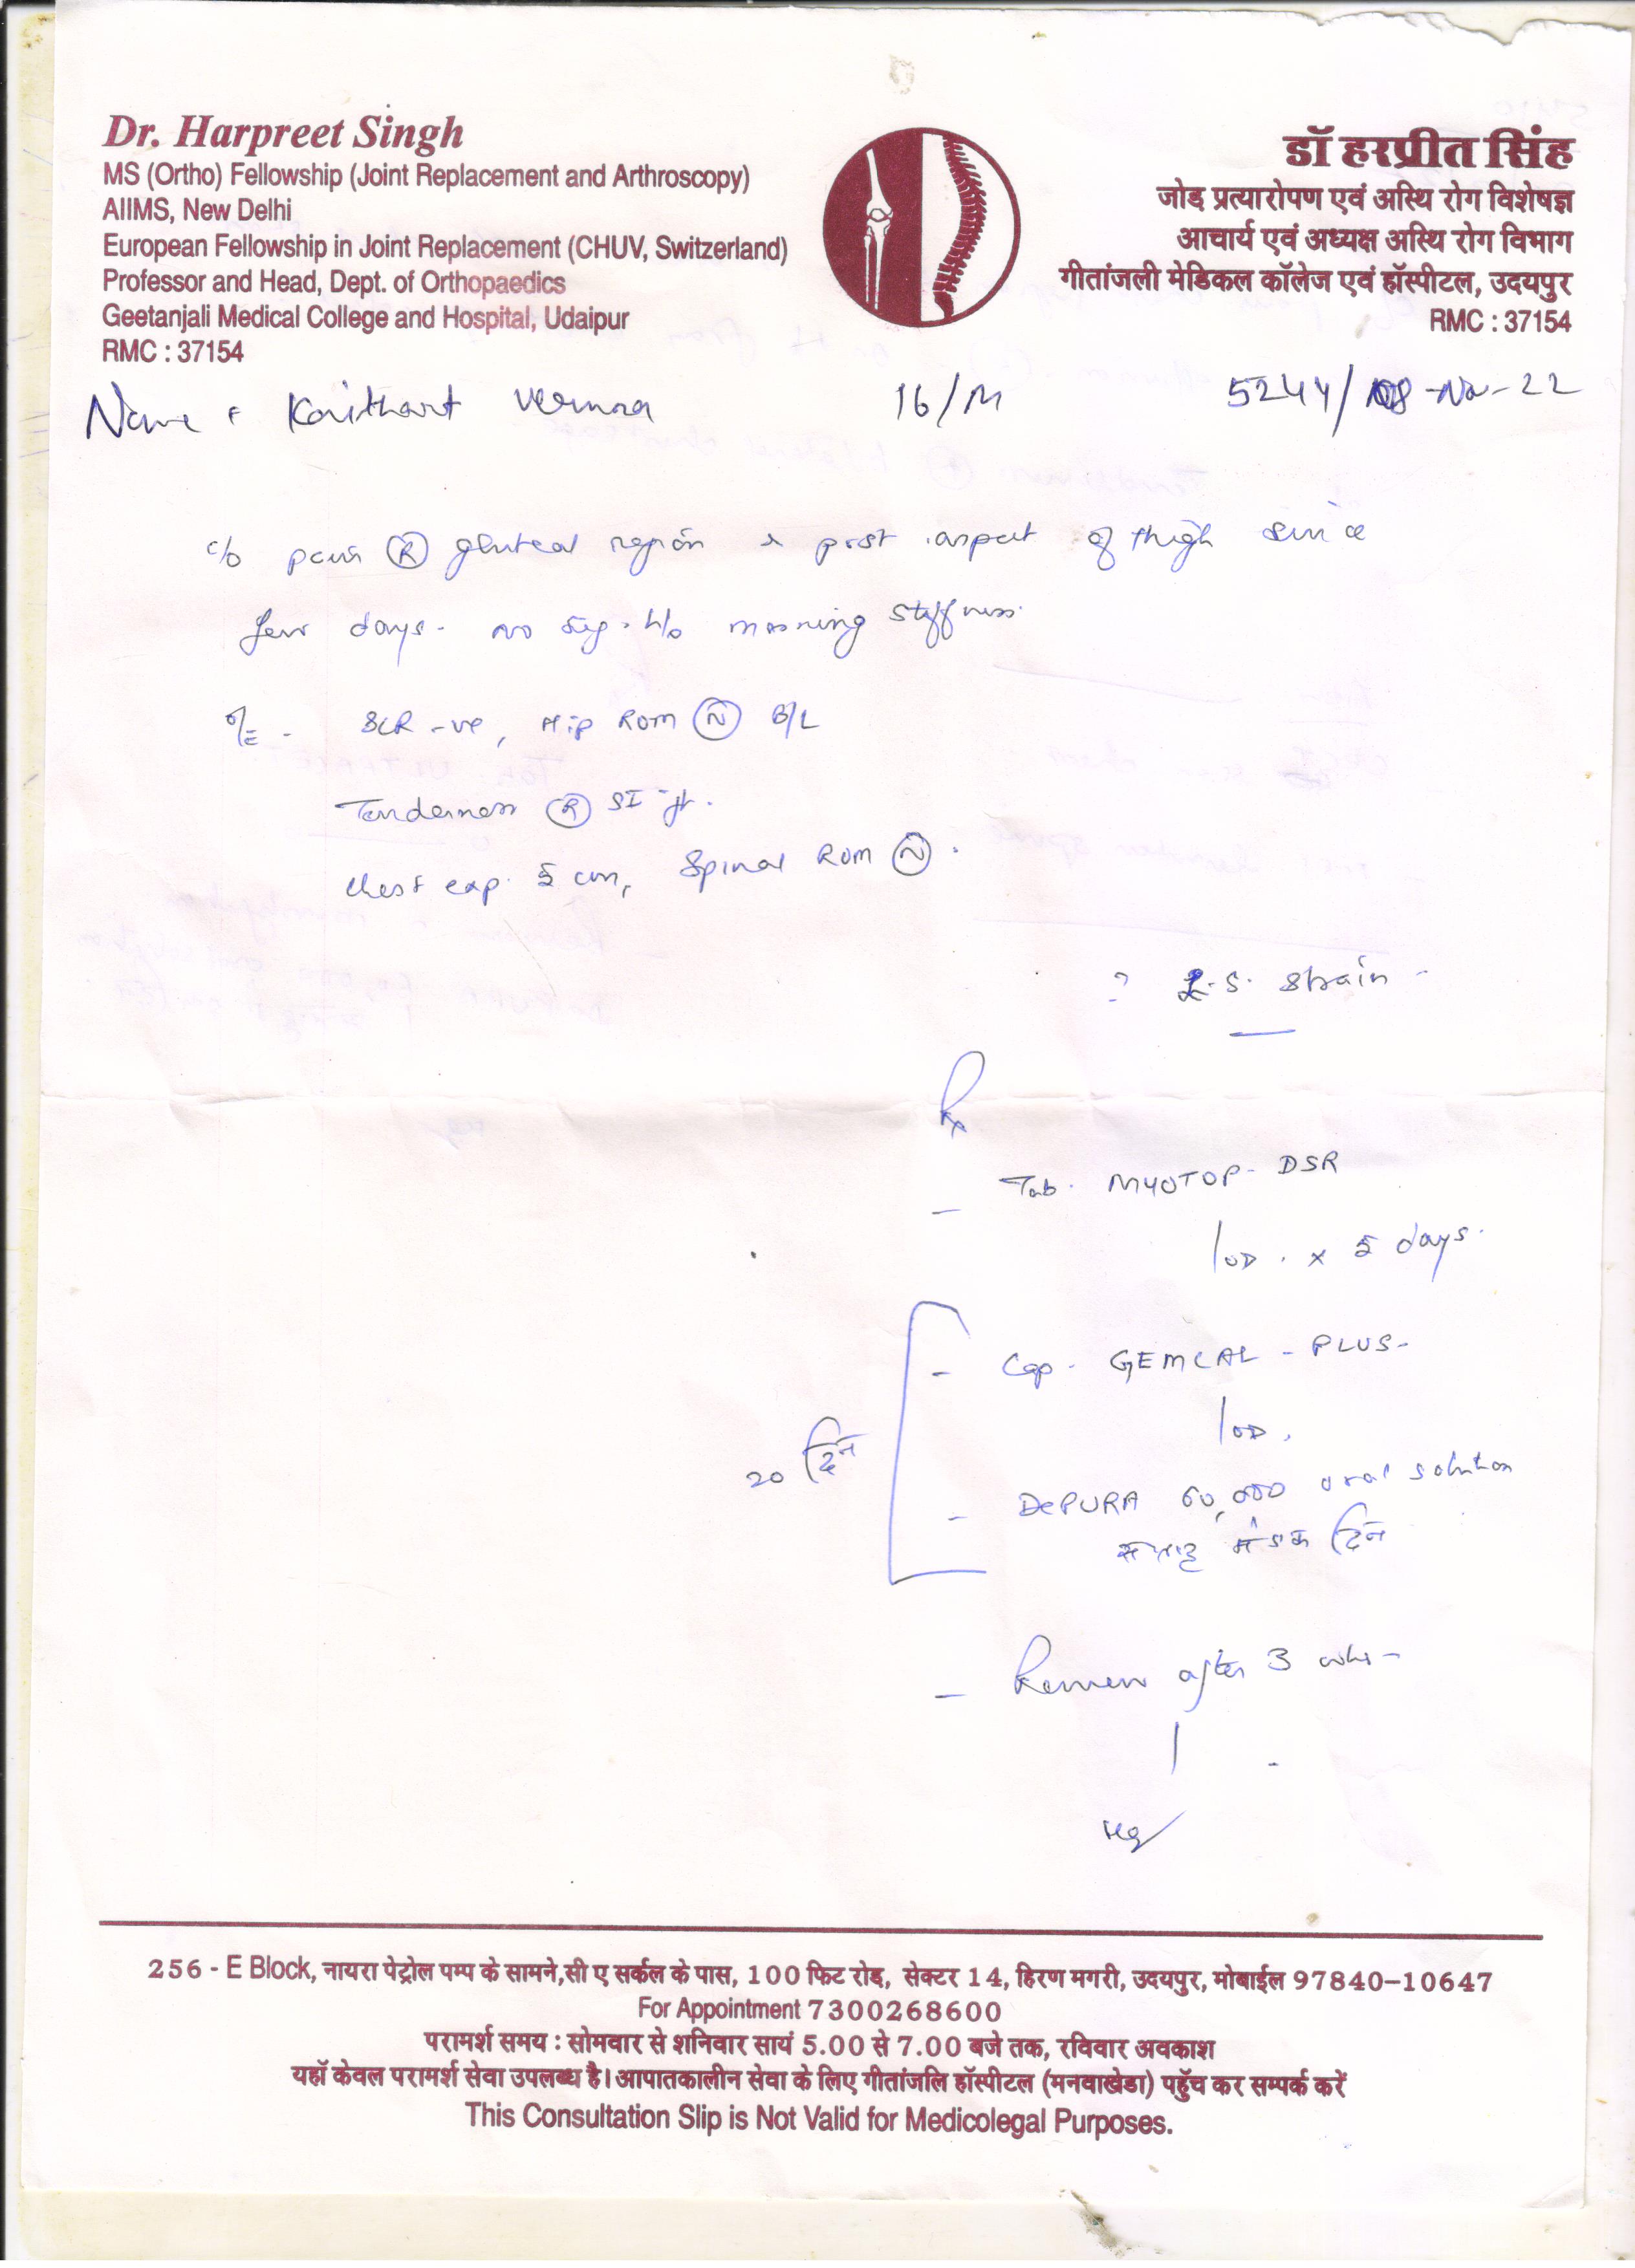 Dr. Harpreet Singh
MS (Ortho) Fellowship (Joint Replacement and Arthroscopy)
AIIMS, New Delhi
European Fellowship in Joint Replacement (CHUV, Switzerland)
Professor and Head, Dept. of Orthopaedics
Geetanjali Medical College and Hospital, Udaipur
RMC : 37154
डॉ हरप्रीत सिंह
जोड़ प्रत्यारोपण एवं अस्थि रोग विशेषज्ञ
आचार्य एवं अध्यक्ष अस्थि रोग विभाग
गीतांजली मेडिकल कॉलेज एवं हॉस्पीटल, उदयपुर
RMC : 37154
Name Verma 16/M 5244/ 08-Nov-22
c/o pain (R) gluteal region & post aspect of thigh since
few days. no sig. h/o morning stiffness.
O/E - SLR -ve, Hip ROM (N) B/L
Tenderness (R) SI jt.
Chest exp. 5 cm, Spinal ROM (N).
? L.S. Strain -
Rx
- Tab. MYOTOP-DSR
1 OD. x 5 days.
- Cap. GEMCAL - PLUS-
1 OD.
20 दिन
- DePURA 60,000 oral solution
सप्ताह में एक दिन
- Review after 3 wks-
256 - E Block, नायरा पेट्रोल पम्प के सामने,सी ए सर्कल के पास, 100 फिट रोड, सेक्टर 14, हिरण मगरी, उदयपुर, मोबाईल 97840-10647
For Appointment 7300268600
परामर्श समय : सोमवार से शनिवार सायं 5.00 से 7.00 बजे तक, रविवार अवकाश
यहॉ केवल परामर्श सेवा उपलब्ध है। आपातकालीन सेवा के लिए गीतांजलि हॉस्पीटल (मनवाखेडा) पहुँच कर सम्पर्क करें
This Consultation Slip is Not Valid for Medicolegal Purposes.